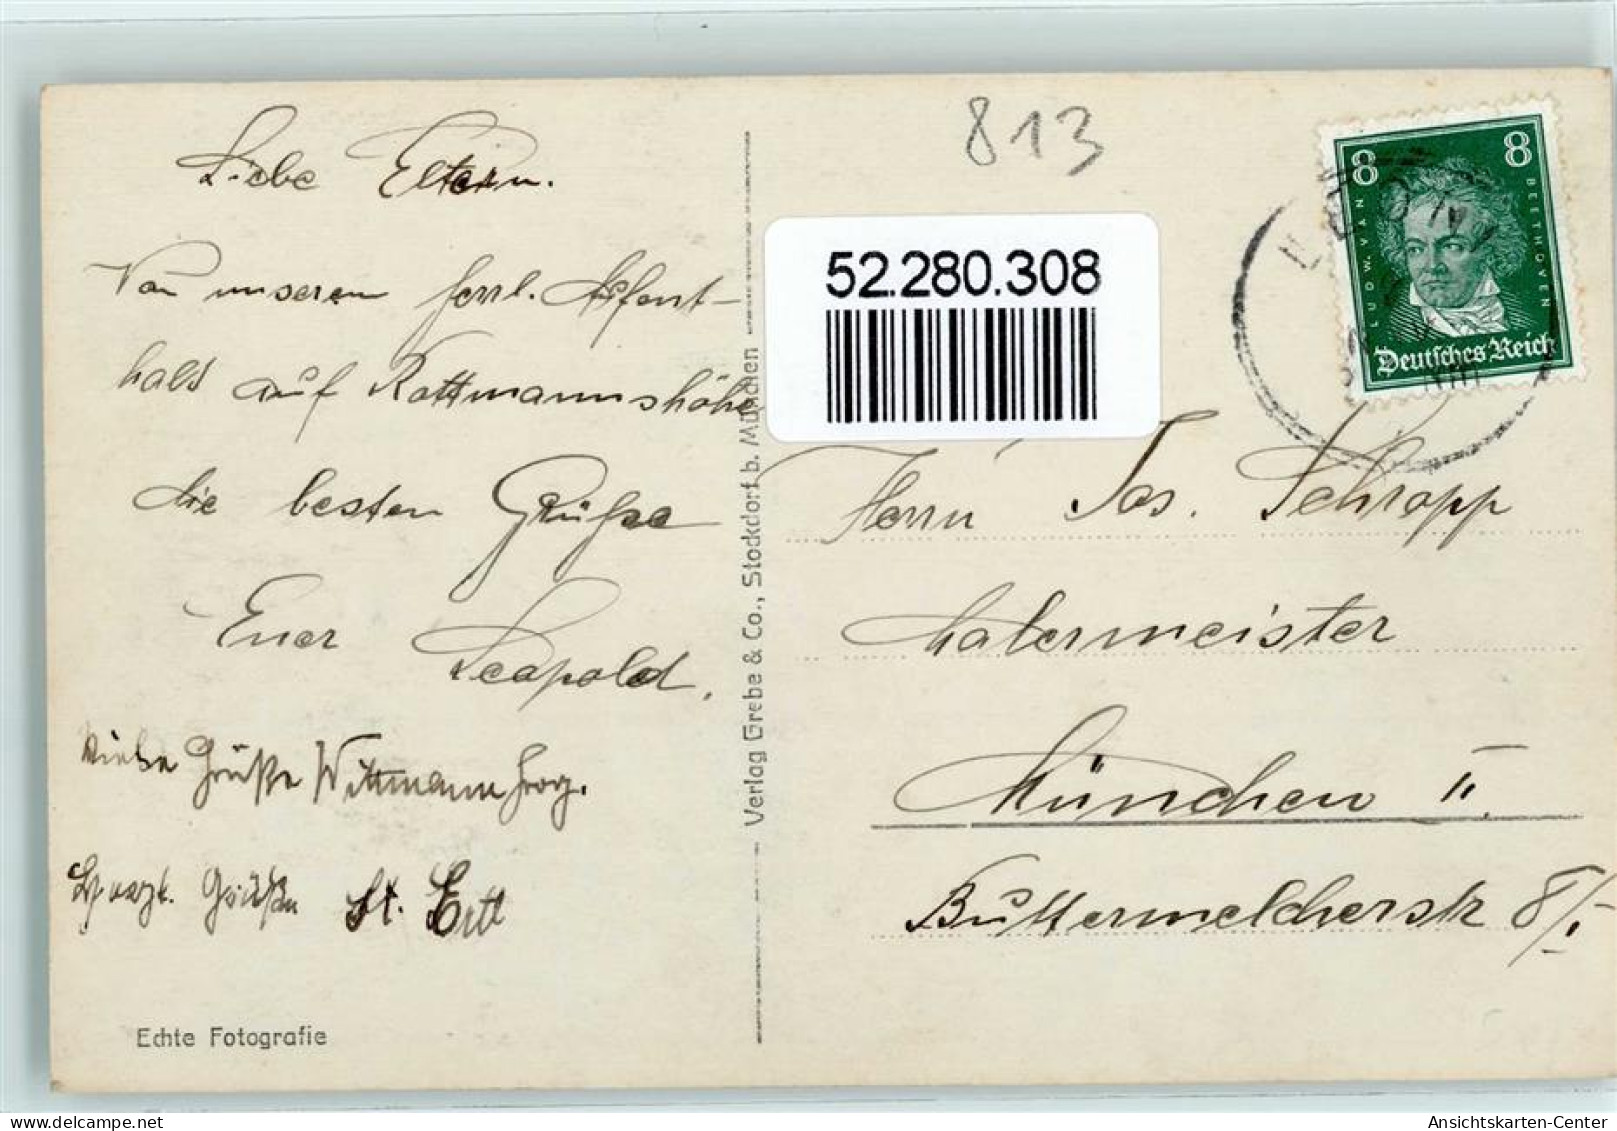 Liebe Eltern.
Von unserem herrl. Aufent-
halt auf Rottmannshöhe
die besten Grüße
Euer Leopold.
Liebe Grüße Wittmann Georg.
Grüße St. Ertl
Echte Fotografie
Verlag Grebe & Co., Stockdorf b. München
813
52.280.308
8 8
LUDW. VAN BEETHOVEN
Deutsches Reich
Herrn Jos. Schropp
Malermeister
München II.
Buttermelcherstr 8/I.
AnsichtsKarten-Center